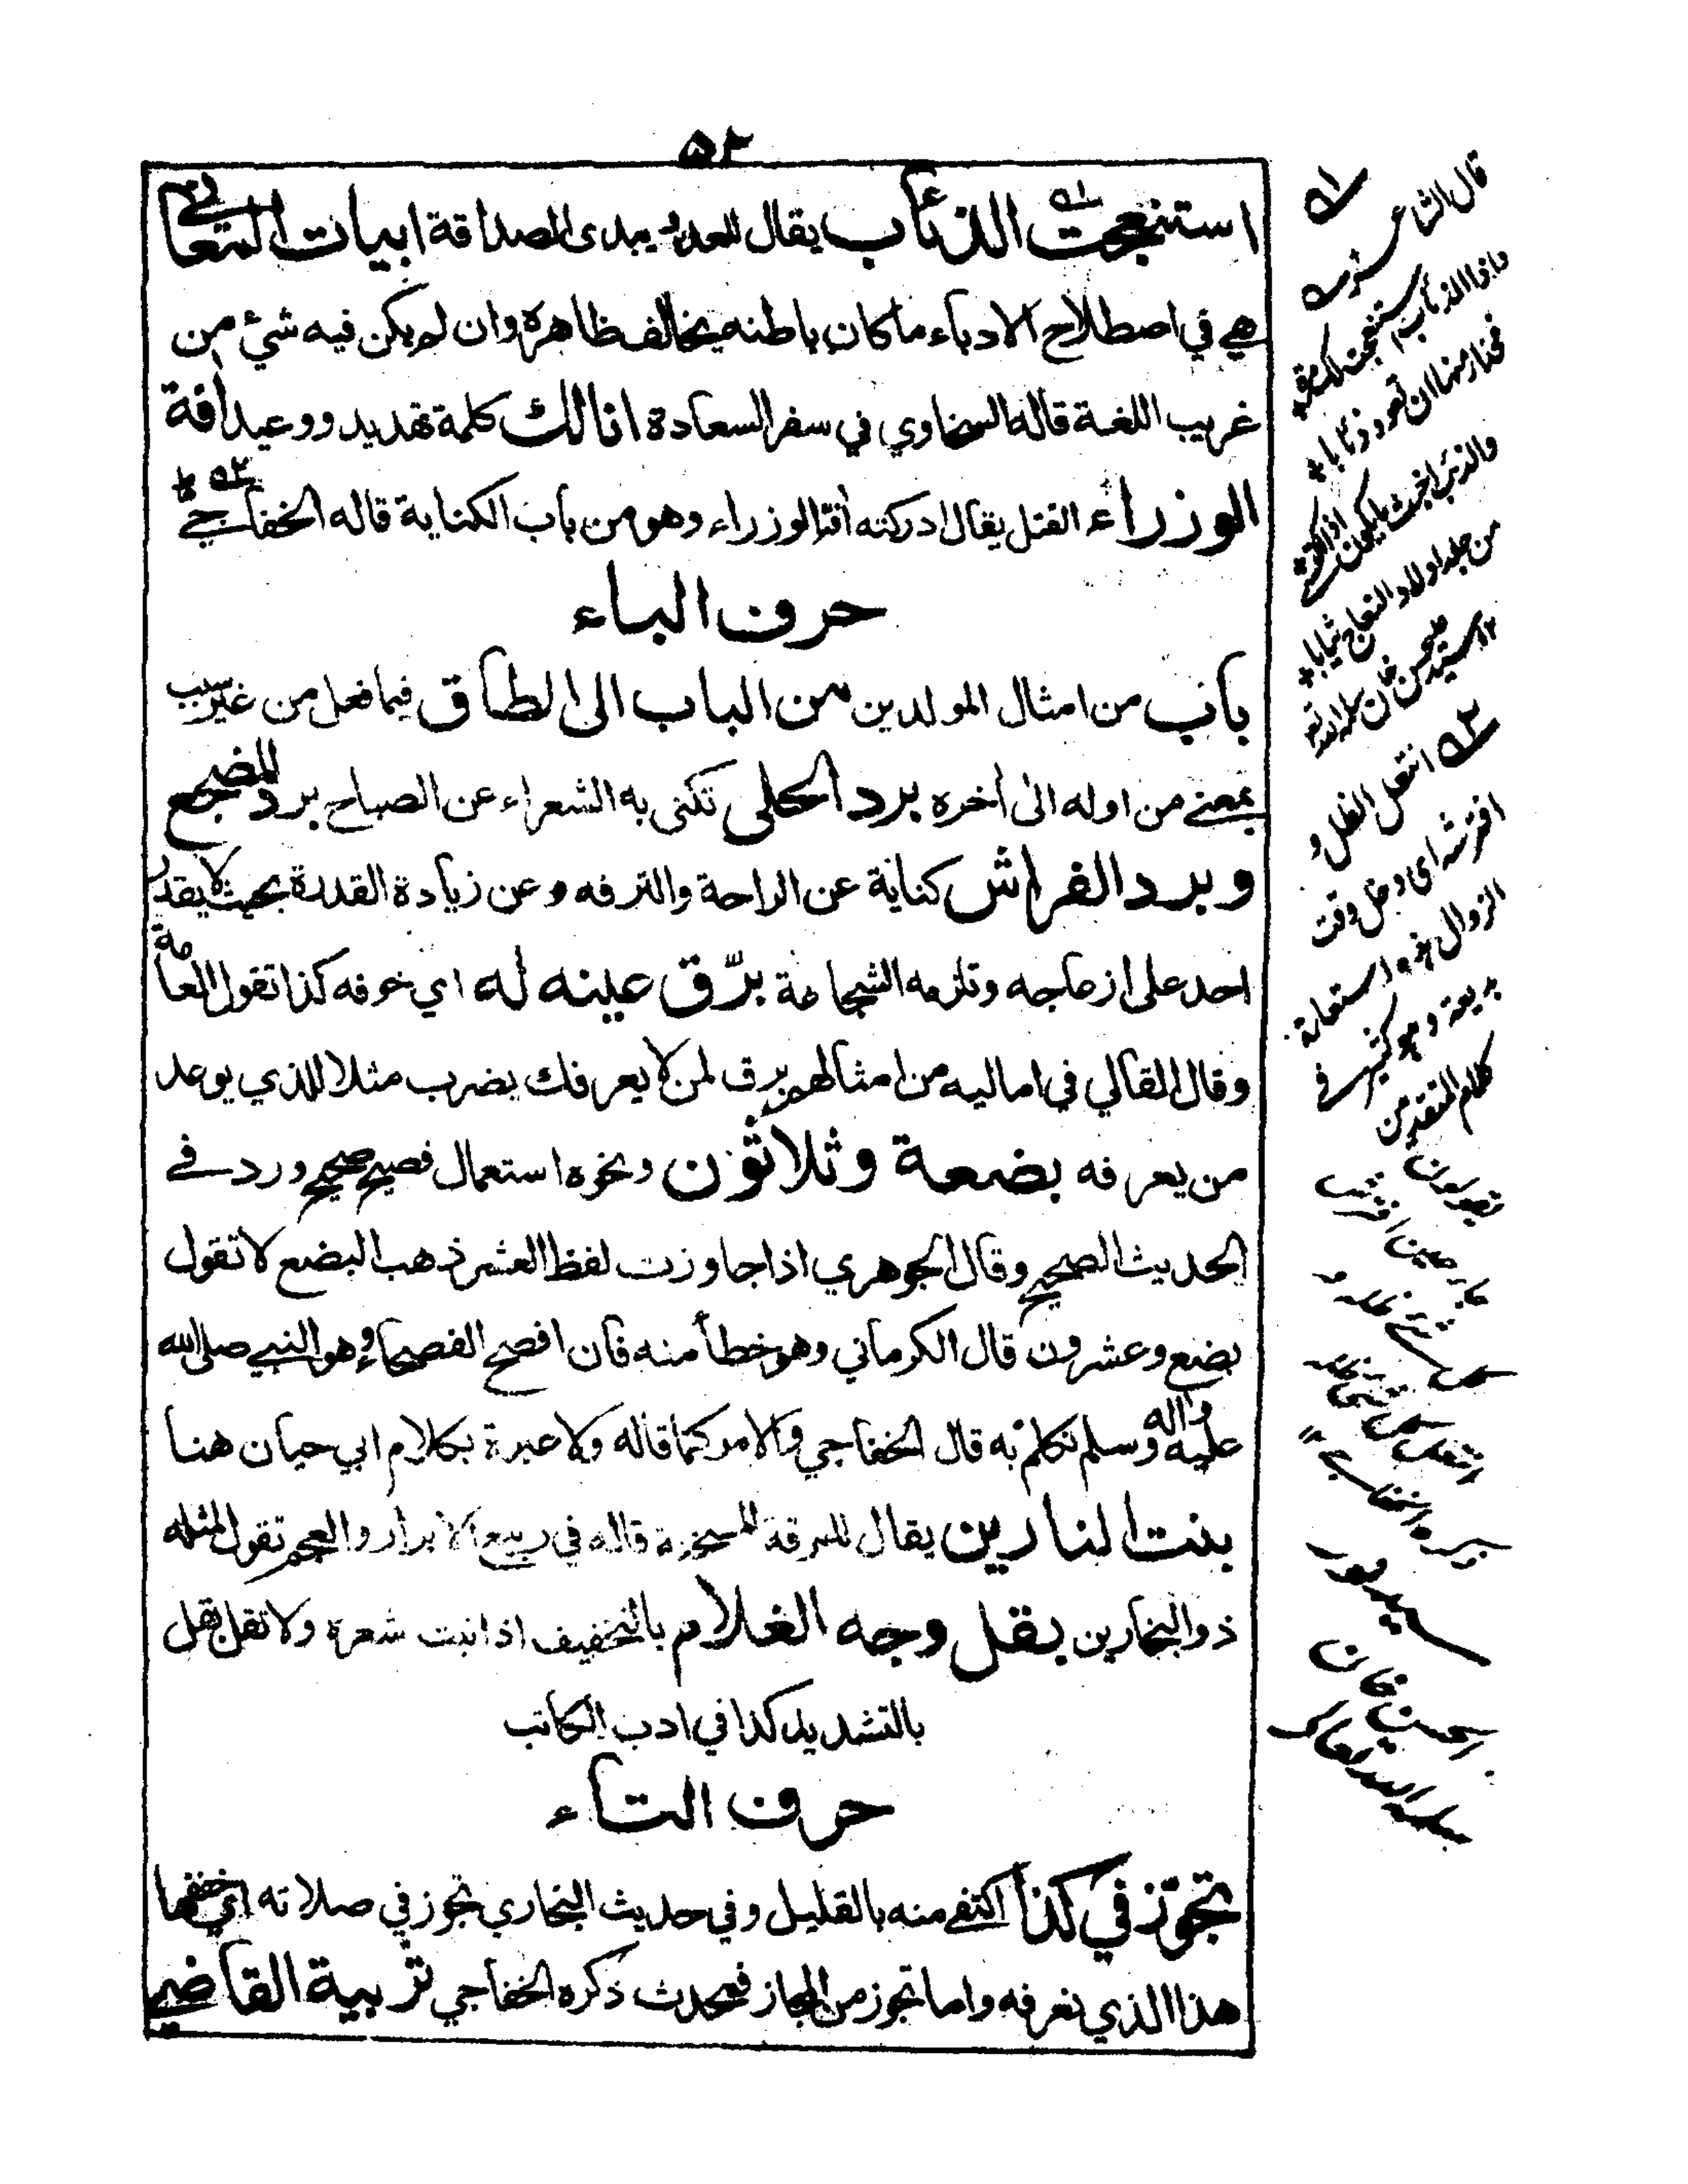 ٥٢
استنعجت الذئاب يقال للعدو يبدى الصداقة ابيات المعاني
هي في اصطلاح الادباء ما كان باطنه يخالف ظاهرة وان لم يكن فيه شيء من
غريب اللغة قاله السخاوي في سفر السعادة انا لك كلمة تهديد ووعيد افة
الوزراء القتل يقال ادركته افة الوزراء وهو من باب الكناية قاله الخفاجي
حرف الباء
باب من امثال المولدين من الباب الى الطاق فيما فعل من غير سبب
بمعنى من اوله الى أخره برد الحلى تكنى به الشعراء عن الصباح برد المضجع
وبرد الفراش كناية عن الراحة والترفه وعن زيادة القدرة بحيث لا يقدر
احد على ازعاجه وتلزمه الشجاعة برّق عينه له اي خوفه كذا تقول العامة
وقال القالي في اماليه من امثالهم برق لمن لا يعرفك يضرب مثلا للذي يوعد
من يعرفه بضعة وثلاثون ونحوه استعمال فصيح صحيح ورد في
الحديث الصحيح وقال الجوهري اذا جاوزت لفظ العشر ذهب البضع لا تقول
بضع وعشرون قال الكرماني وهو خطأ منه فان افصح الفصحاء وهو النبي صلى الله
عليه واله وسلم تكلم به قال الخفاجي والامر كما قاله ولا عبرة بكلام ابي حيان هنا
بنت النارين يقال للمرقة المسخنة قاله في ربيع الابرار والعجم تقول لمثله
ذو البخارين بقل وجه الغلام بالتخفيف اذا نبت شعرة ولا تقل بقل
بالتشديد كذا في ادب الكاتب
حرف التاء
تجوّز في كذا اكتفى منه بالقليل وفي حديث البخاري تجوز في صلاته اي خففها
هذا الذي نعرفه واما تجوز من المجاز فمحدث ذكره الخفاجي تربية القاضي
قال الشاعر
واذا الذئاب استنعجت لك مرة
فحذار منها ان تعود ذئابا
والذئب اخبث ما يكون اذا اكتسى
من جلد اولاد النعاج ثيابا
انتعل الظل و
افترشه اى دخل وقت
الزوال هو استعارة
بديعة وهو كثير في
كلام المتقدمين